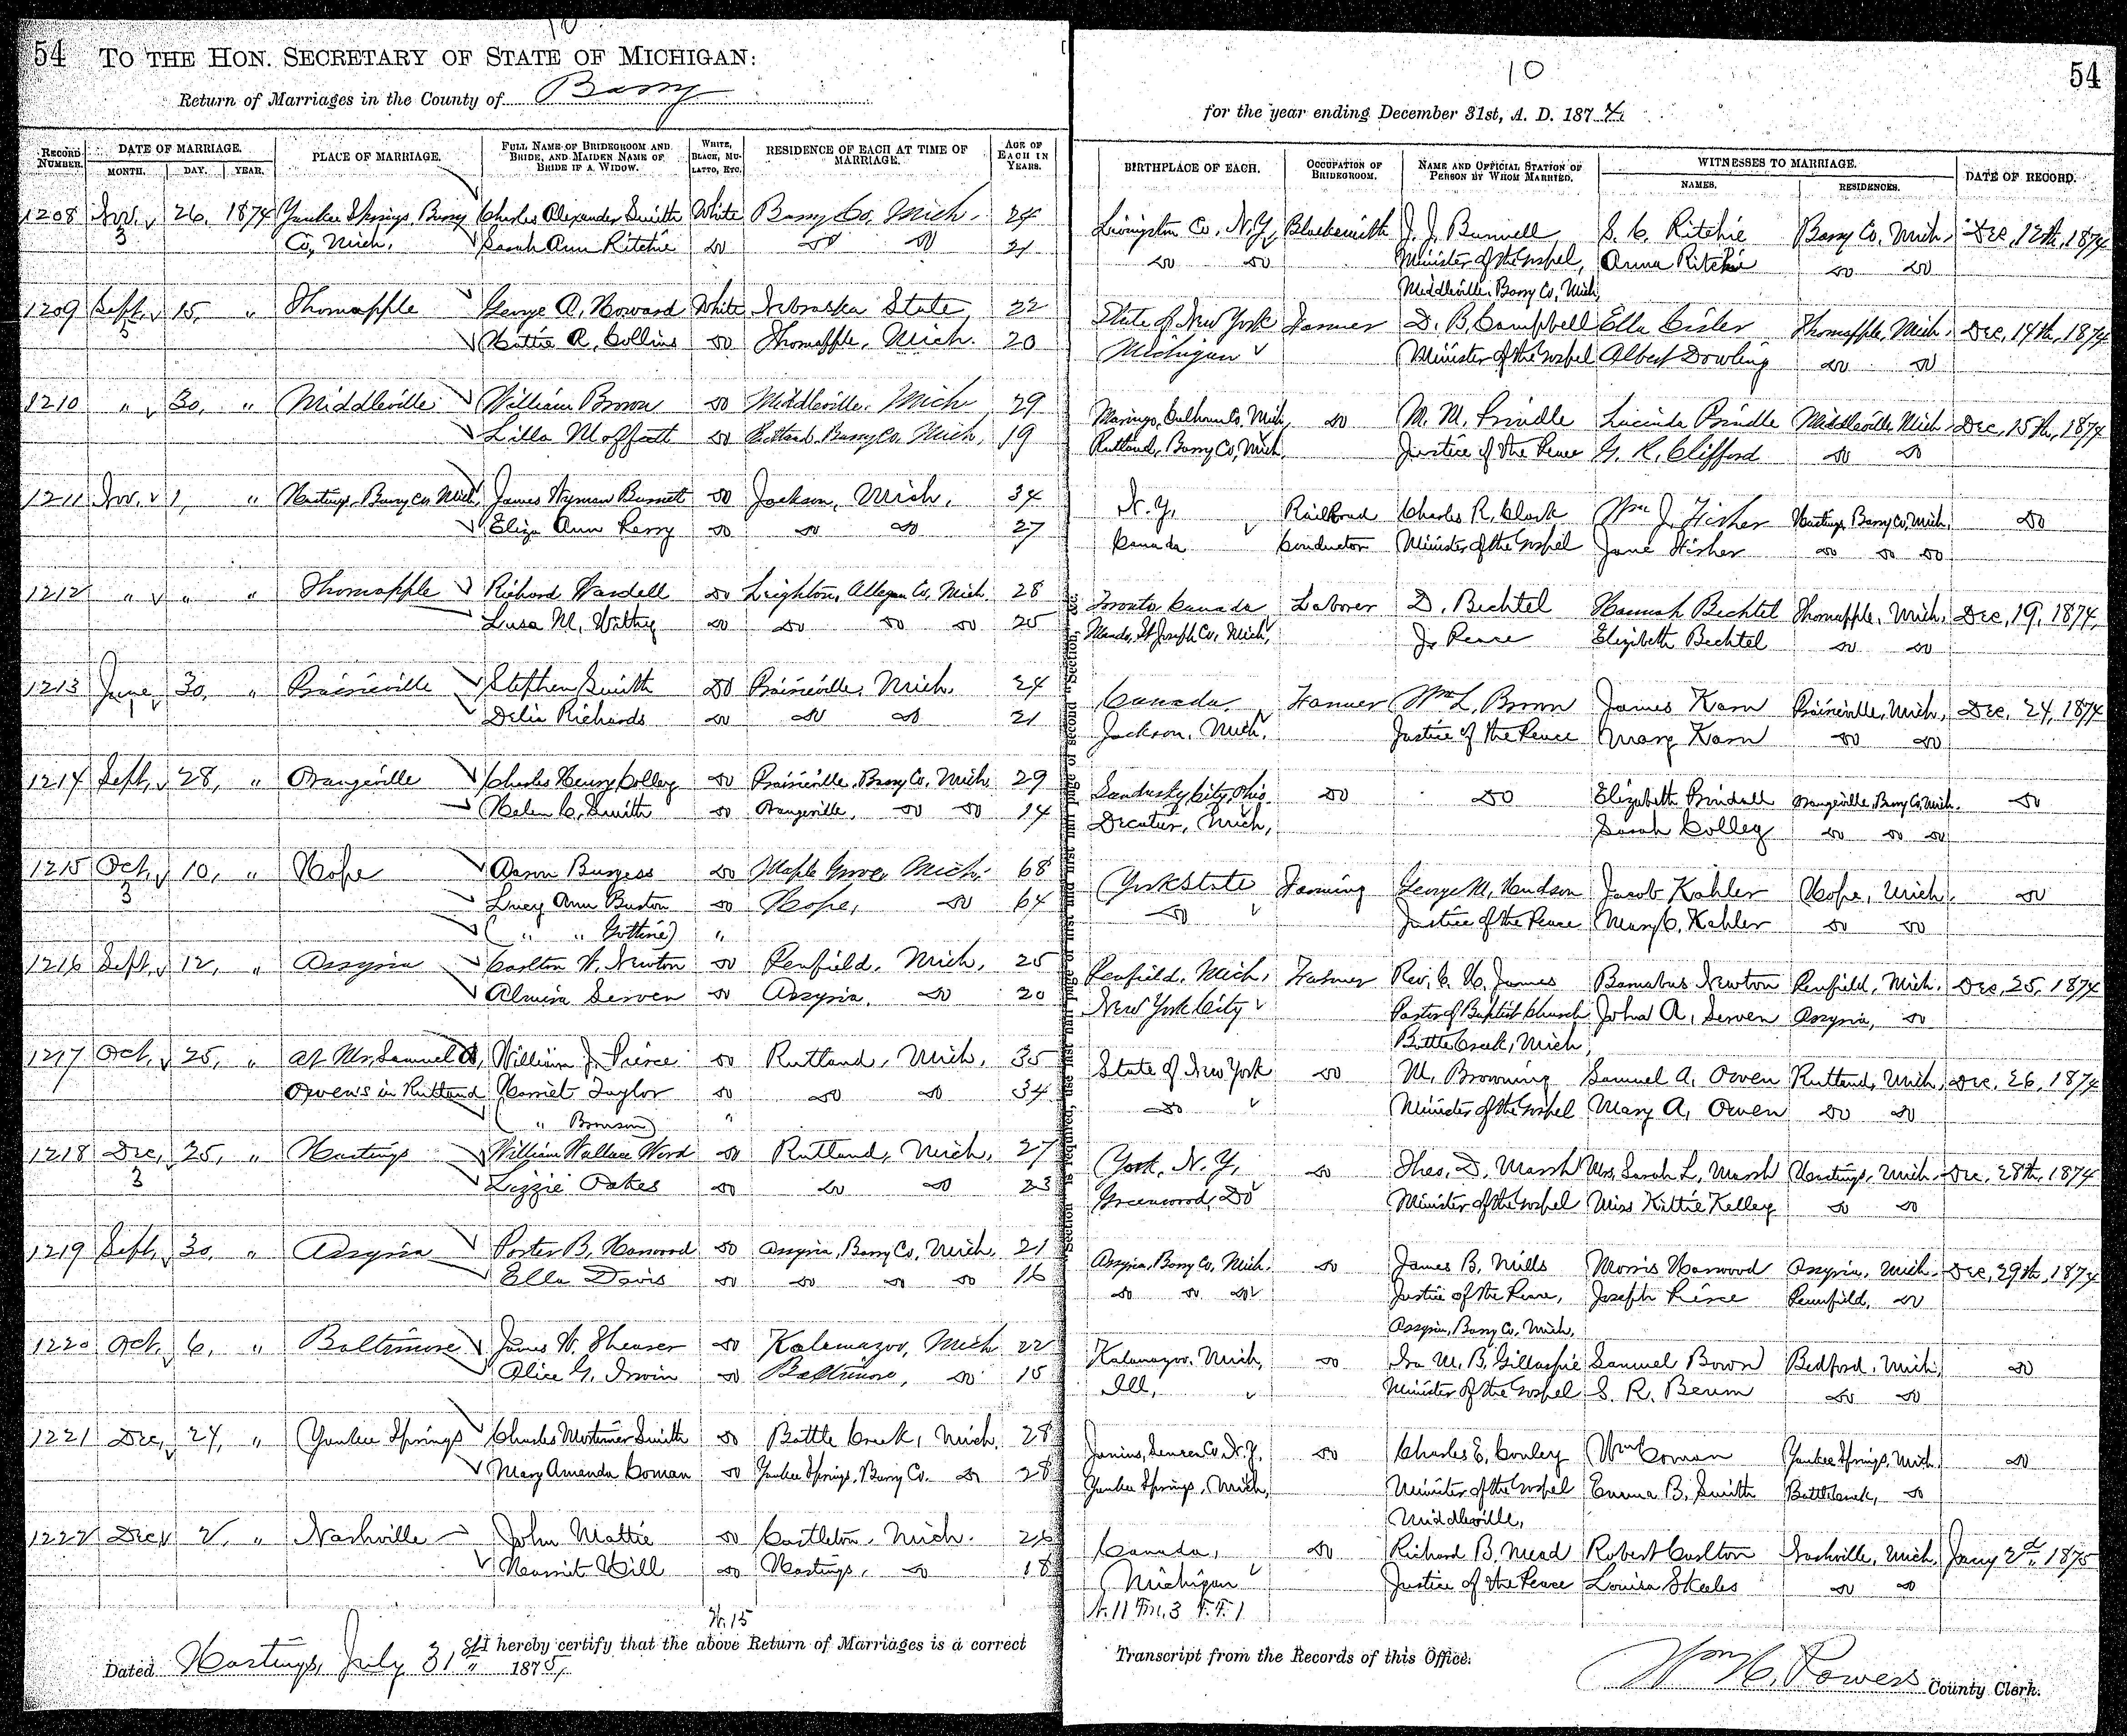 10
54 TO THE HON. SECRETARY OF STATE OF MICHIGAN:
Return of Marriages in the County of Barry
RECORD NUMBER. DATE OF MARRIAGE. MONTH. DAY. YEAR. PLACE OF MARRIAGE. FULL NAME OF BRIDEGROOM AND BRIDE, AND MAIDEN NAME OF BRIDE IF A WIDOW. WHITE, BLACK, MULATTO, ETC. RESIDENCE OF EACH AT TIME OF MARRIAGE. AGE OF EACH IN YEARS.
1208 Nov. 26, 1874 Yankee Springs, Barry Charles Alexander Smith White Barry Co, Mich. 24
3 Co, Mich. Sarah Ann Ritchie do do do 21
1209 Sept, 15, " Thornapple George A. Howard White Nebraska State 22
3 Hattie R. Collins do Thornapple, Mich. 20
1210 " 30, " Middleville William Brown do Middleville, Mich 29
Lilla Moffatt do Rutland, Barry Co, Mich, 19
1211 Nov. 1, " Hastings, Barry Co, Mich James Wyman Burnett do Jackson, Mich. 34
Eliza Ann Perry do do do 27
1212 " " " Thornapple Richard Wardell do Leighton, Allegan Co, Mich. 28
Lusa M. Withey do do do do 25
1213 June 30, " Prairieville Stephen Smith do Prairieville, Mich. 24
1 Delia Richards do do do 21
1214 Sept, 28, " Orangeville Charles Henry Colley do Prairieville, Barry Co, Mich 29
Helen C. Smith do Orangeville, do do 14
1215 Oct, 10, " Hope Aaron Burgess do Maple Grove, Mich. 68
3 Lucy Ann Buxton do Hope, do 64
( " " ) "
1216 Sept, 12, " Assyria Carlton W. Newton do Penfield, Mich, 25
Almira Serven do Assyria, do 20
1217 Oct, 25, " at Mr, Samuel A, William J. Pierce do Rutland, Mich, 35
Owen's in Rutland Harriet Taylor do do do 34
( " Bronson) "
1218 Dec, 25, " Hastings William Wallace Word do Rutland, Mich, 27
3 Lizzie Oakes do do do 23
1219 Sept, 30, " Assyria Porter B. Harwood do Assyria, Barry Co, Mich, 21
Ella Davis do do do do 16
1220 Oct, 6, " Baltimore James W. Shearer do Kalamazoo, Mich 22
Alice G. Irwin do Baltimore, do 15
1221 Dec, 24, " Yankee Springs Charles Mortimer Smith do Battle Creek, Mich. 28
Mary Amanda Coman do Yankee Springs, Barry Co. do 28
1222 Dec 2, " Nashville John Mattie do Castleton, Mich. 26
Harriet Hill do Hastings, do 18
W. 15
I hereby certify that the above Return of Marriages is a correct
Dated Hastings, July 31st 1875,
10 54
for the year ending December 31st, A. D. 1874
BIRTHPLACE OF EACH. OCCUPATION OF BRIDEGROOM. NAME AND OFFICIAL STATION OF PERSON BY WHOM MARRIED. WITNESSES TO MARRIAGE. NAMES. RESIDENCES. DATE OF RECORD.
Livingston Co, N.Y, Blacksmith J. J. Bunnell S. C. Ritchie Barry Co, Mich, Dec, 12th, 1874
do do Minister of the Gospel, Anna Ritchie do do
Middleville, Barry Co, Mich,
State of New York Farmer D. B. Campbell Ella Cisler Thornapple, Mich. Dec, 14th, 1874
Michigan Minister of the Gospel Albert Dowling do do
Marengo, Calhoun Co, Mich, do M. M. Prindle Lucinda Prindle Middleville, Mich. Dec, 15th, 1874
Rutland, Barry Co, Mich. Justice of the Peace G. R. Clifford do do
N. Y, Railroad Charles R. Clark Wm J. Fisher Hastings, Barry Co, Mich, do
Canada Conductor Minister of the Gospel Jane Fisher do do do
Toronto, Canada Laborer D. Bechtel Hannah Bechtel Thornapple, Mich. Dec, 19, 1874,
St Joseph Co, Mich, J. Peace Elizabeth Bechtel do do
Canada Farmer Wm L. Brown James Karn Prairieville, Mich, Dec, 24, 1874
Jackson, Mich, Justice of the Peace Mary Karn do do
Sandusky City, Ohio do do Elizabeth Prindall Orangeville, Barry Co, Mich. do
Decatur, Mich, Sarah Colley do do do
York State Farming George M, Hudson Jacob Kahler Hope, Mich. do
do Justice of the Peace Mary C. Kahler do do
Penfield, Mich, Farmer Rev, C. H. James Barnabus Newton Penfield, Mich. Dec, 25, 1874
New York City Pastor of Baptist Church John A, Serven Assyria, do
Battle Creek, Mich,
State of New York do M. Browning Samuel A, Owen Rutland, Mich, Dec, 26, 1874
do Minister of the Gospel Mary A, Owen do do
York, N. Y, do Theo, D. Marsh Mrs, Sarah L, Marsh Hastings, Mich. Dec, 28th, 1874
Greenwood, Do Minister of the Gospel Miss Kittie Kelley do do
Assyria, Barry Co, Mich. do James B. Mills Morris Harwood Assyria, Mich. Dec, 29th, 1874
do do do Justice of the Peace, Joseph Pierce Pennfield, do
Assyria, Barry Co, Mich,
Kalamazoo, Mich, do Ira M. B. Gillaspie Samuel Bown Bedford, Mich, do
Ill, Minister of the Gospel S. R. Berum do do
Junius, Seneca Co, N.Y, do Charles E, Conley Wm Coman Yankee Springs, Mich do
Yankee Springs, Mich, Minister of the Gospel Emma B. Smith Battlecreek, do
Middleville,
Canada, do Richard B. Mead Robert Carlton Nashville, Mich, Jany 2d, 1875
Michigan Justice of the Peace Louisa Skeels do do
N. 11 Fm. 3 F.F. 1
Transcript from the Records of this Office.
Wm H. Powers County Clerk.